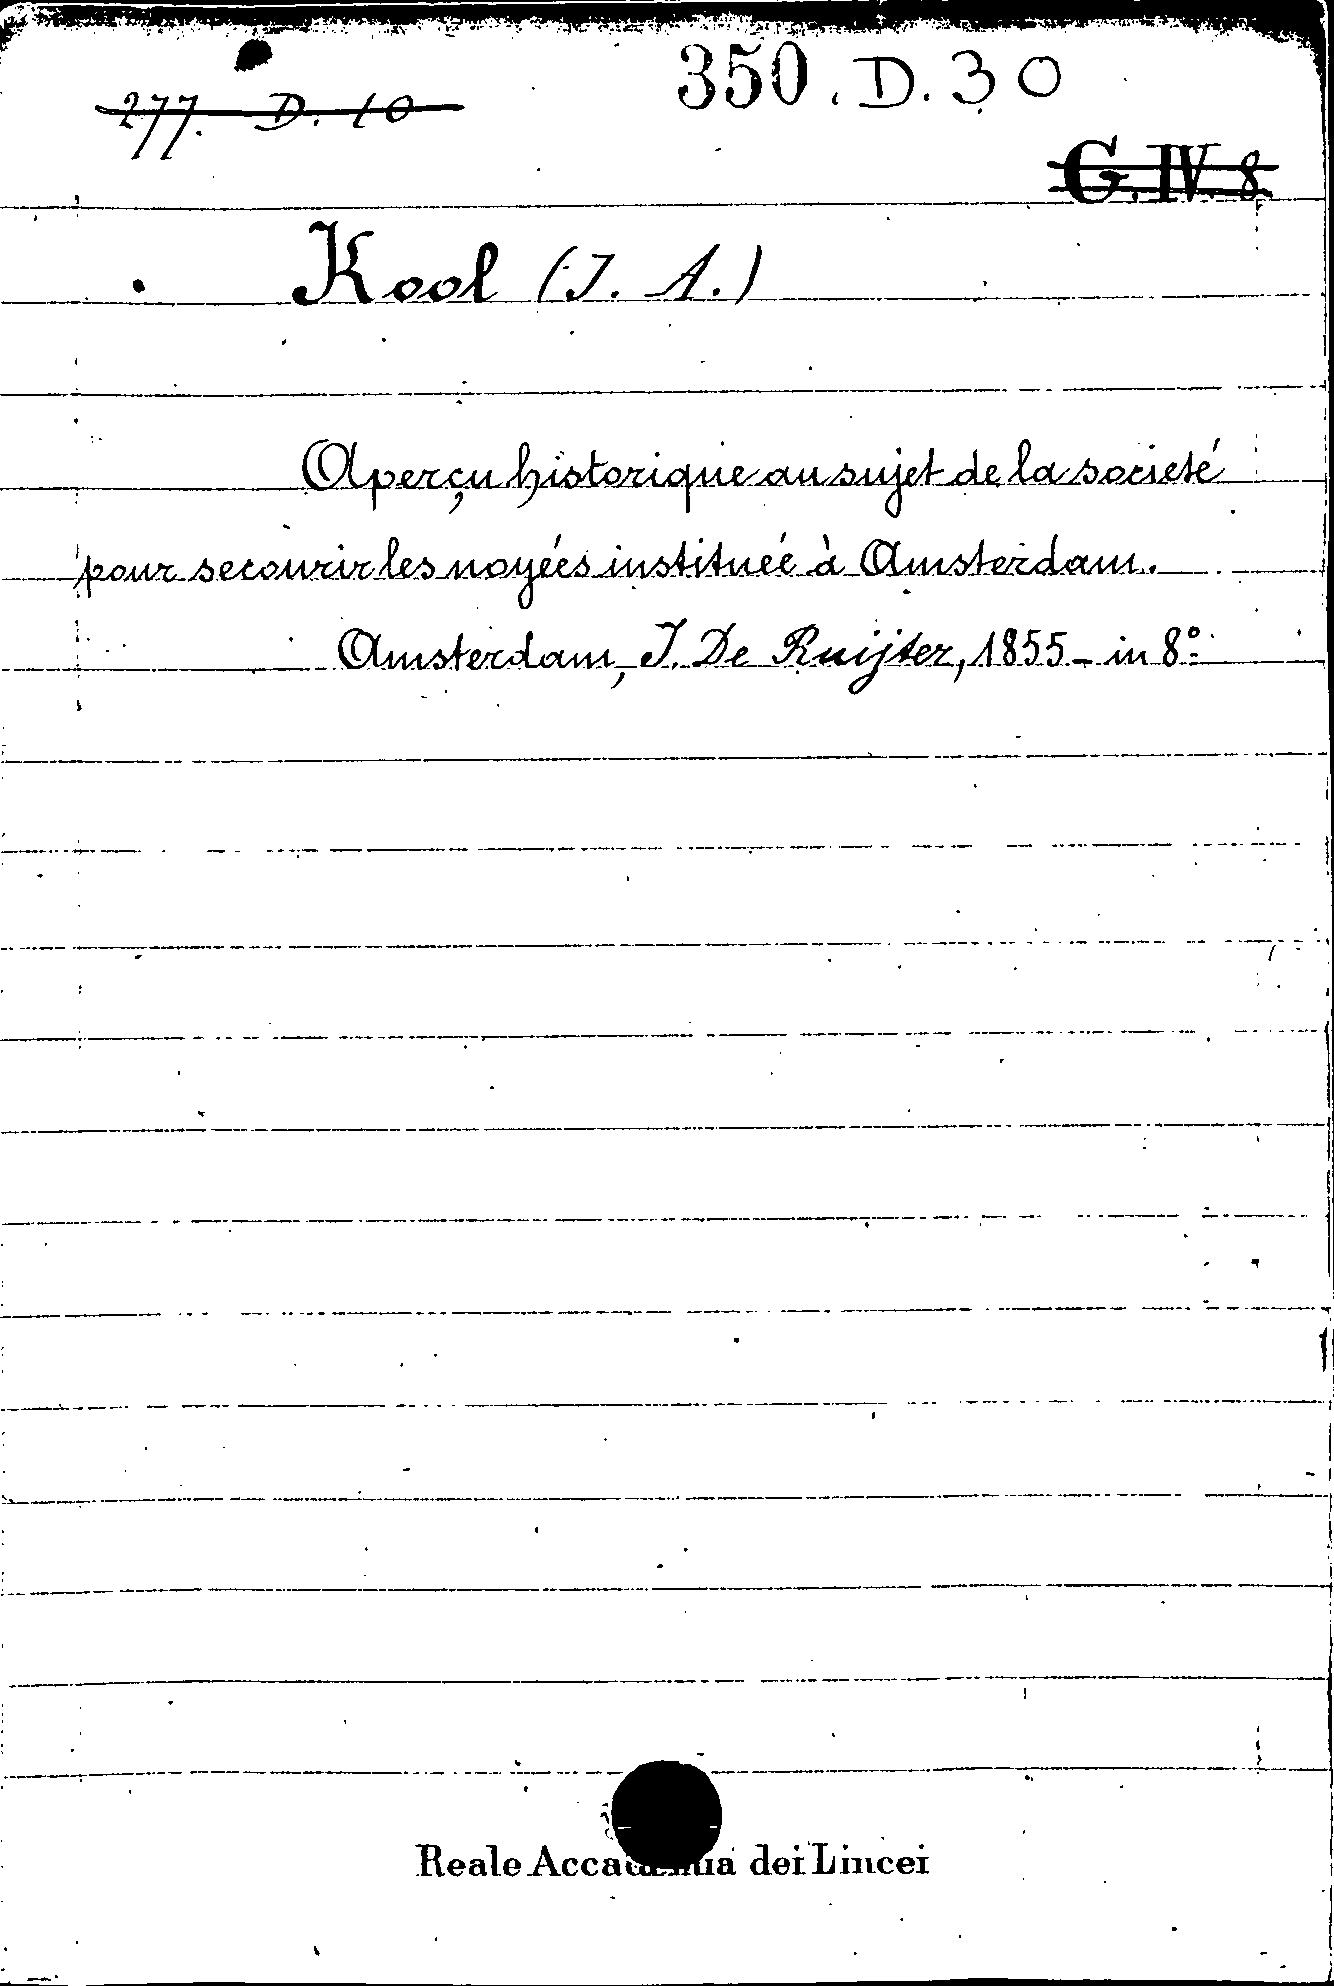 277. D. 10
350. D. 30
G. IV. 8
Kool (J. A.)
Aperçu historique au sujet de la societé
pour secourir les noyées instituéé à Amsterdam.
Amsterdam, J. De Ruijter, 1855 - in 8°
Reale Accademia dei Lincei